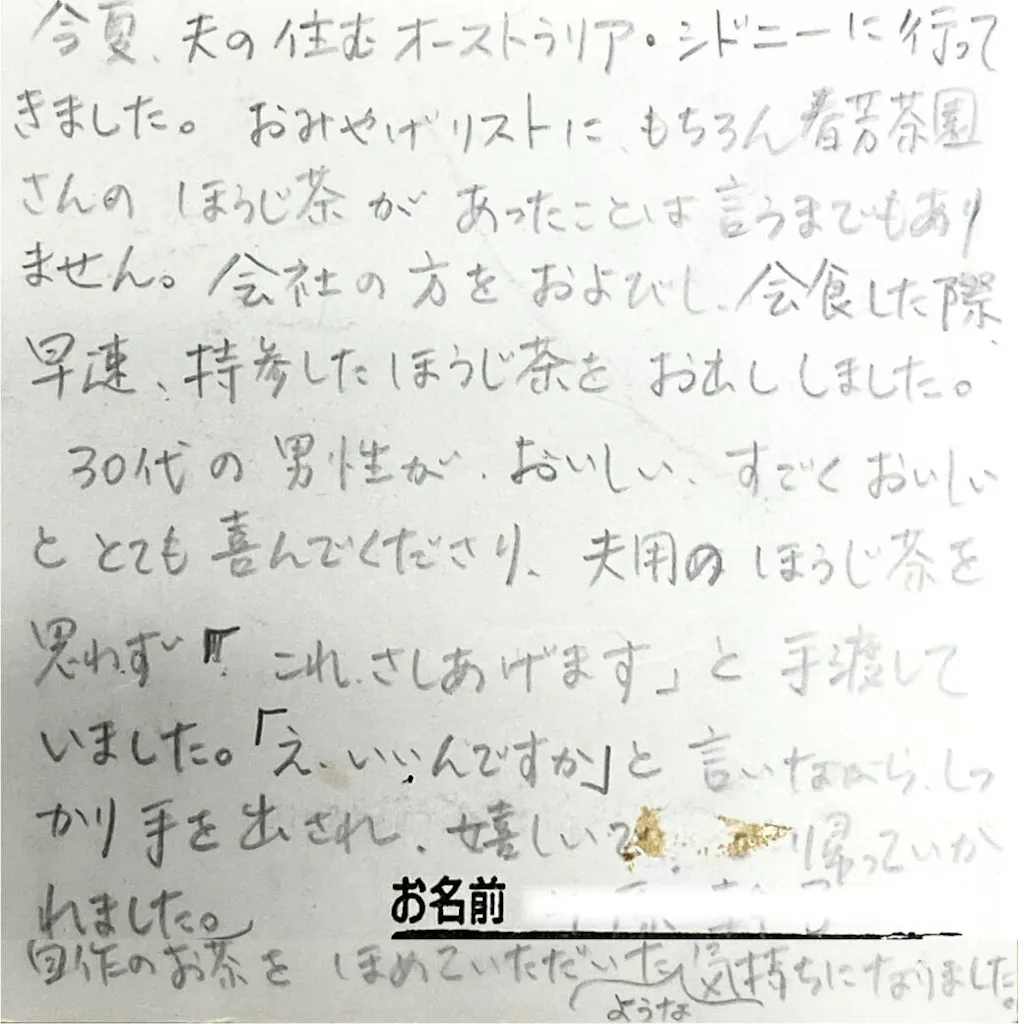 今夏、夫の住むオーストラリア・シドニーに行って
きました。おみやげリストに、もちろん春芳茶園
さんのほうじ茶があったことは言うまでもあり
ません。会社の方をおよびし、会食した際、
早速、持参したほうじ茶をお出ししました。
30代の男性が、おいしい、すごくおいしい
ととても喜んでくださり、夫用のほうじ茶を
思わず「これ、さしあげます」と手渡して
いました。「え、いいんですか」と言いながら、しっ
かり手を出され、嬉しい 帰っていか
れました。
お名前
自作のお茶をほめていただいた気持ちになりました。
ような